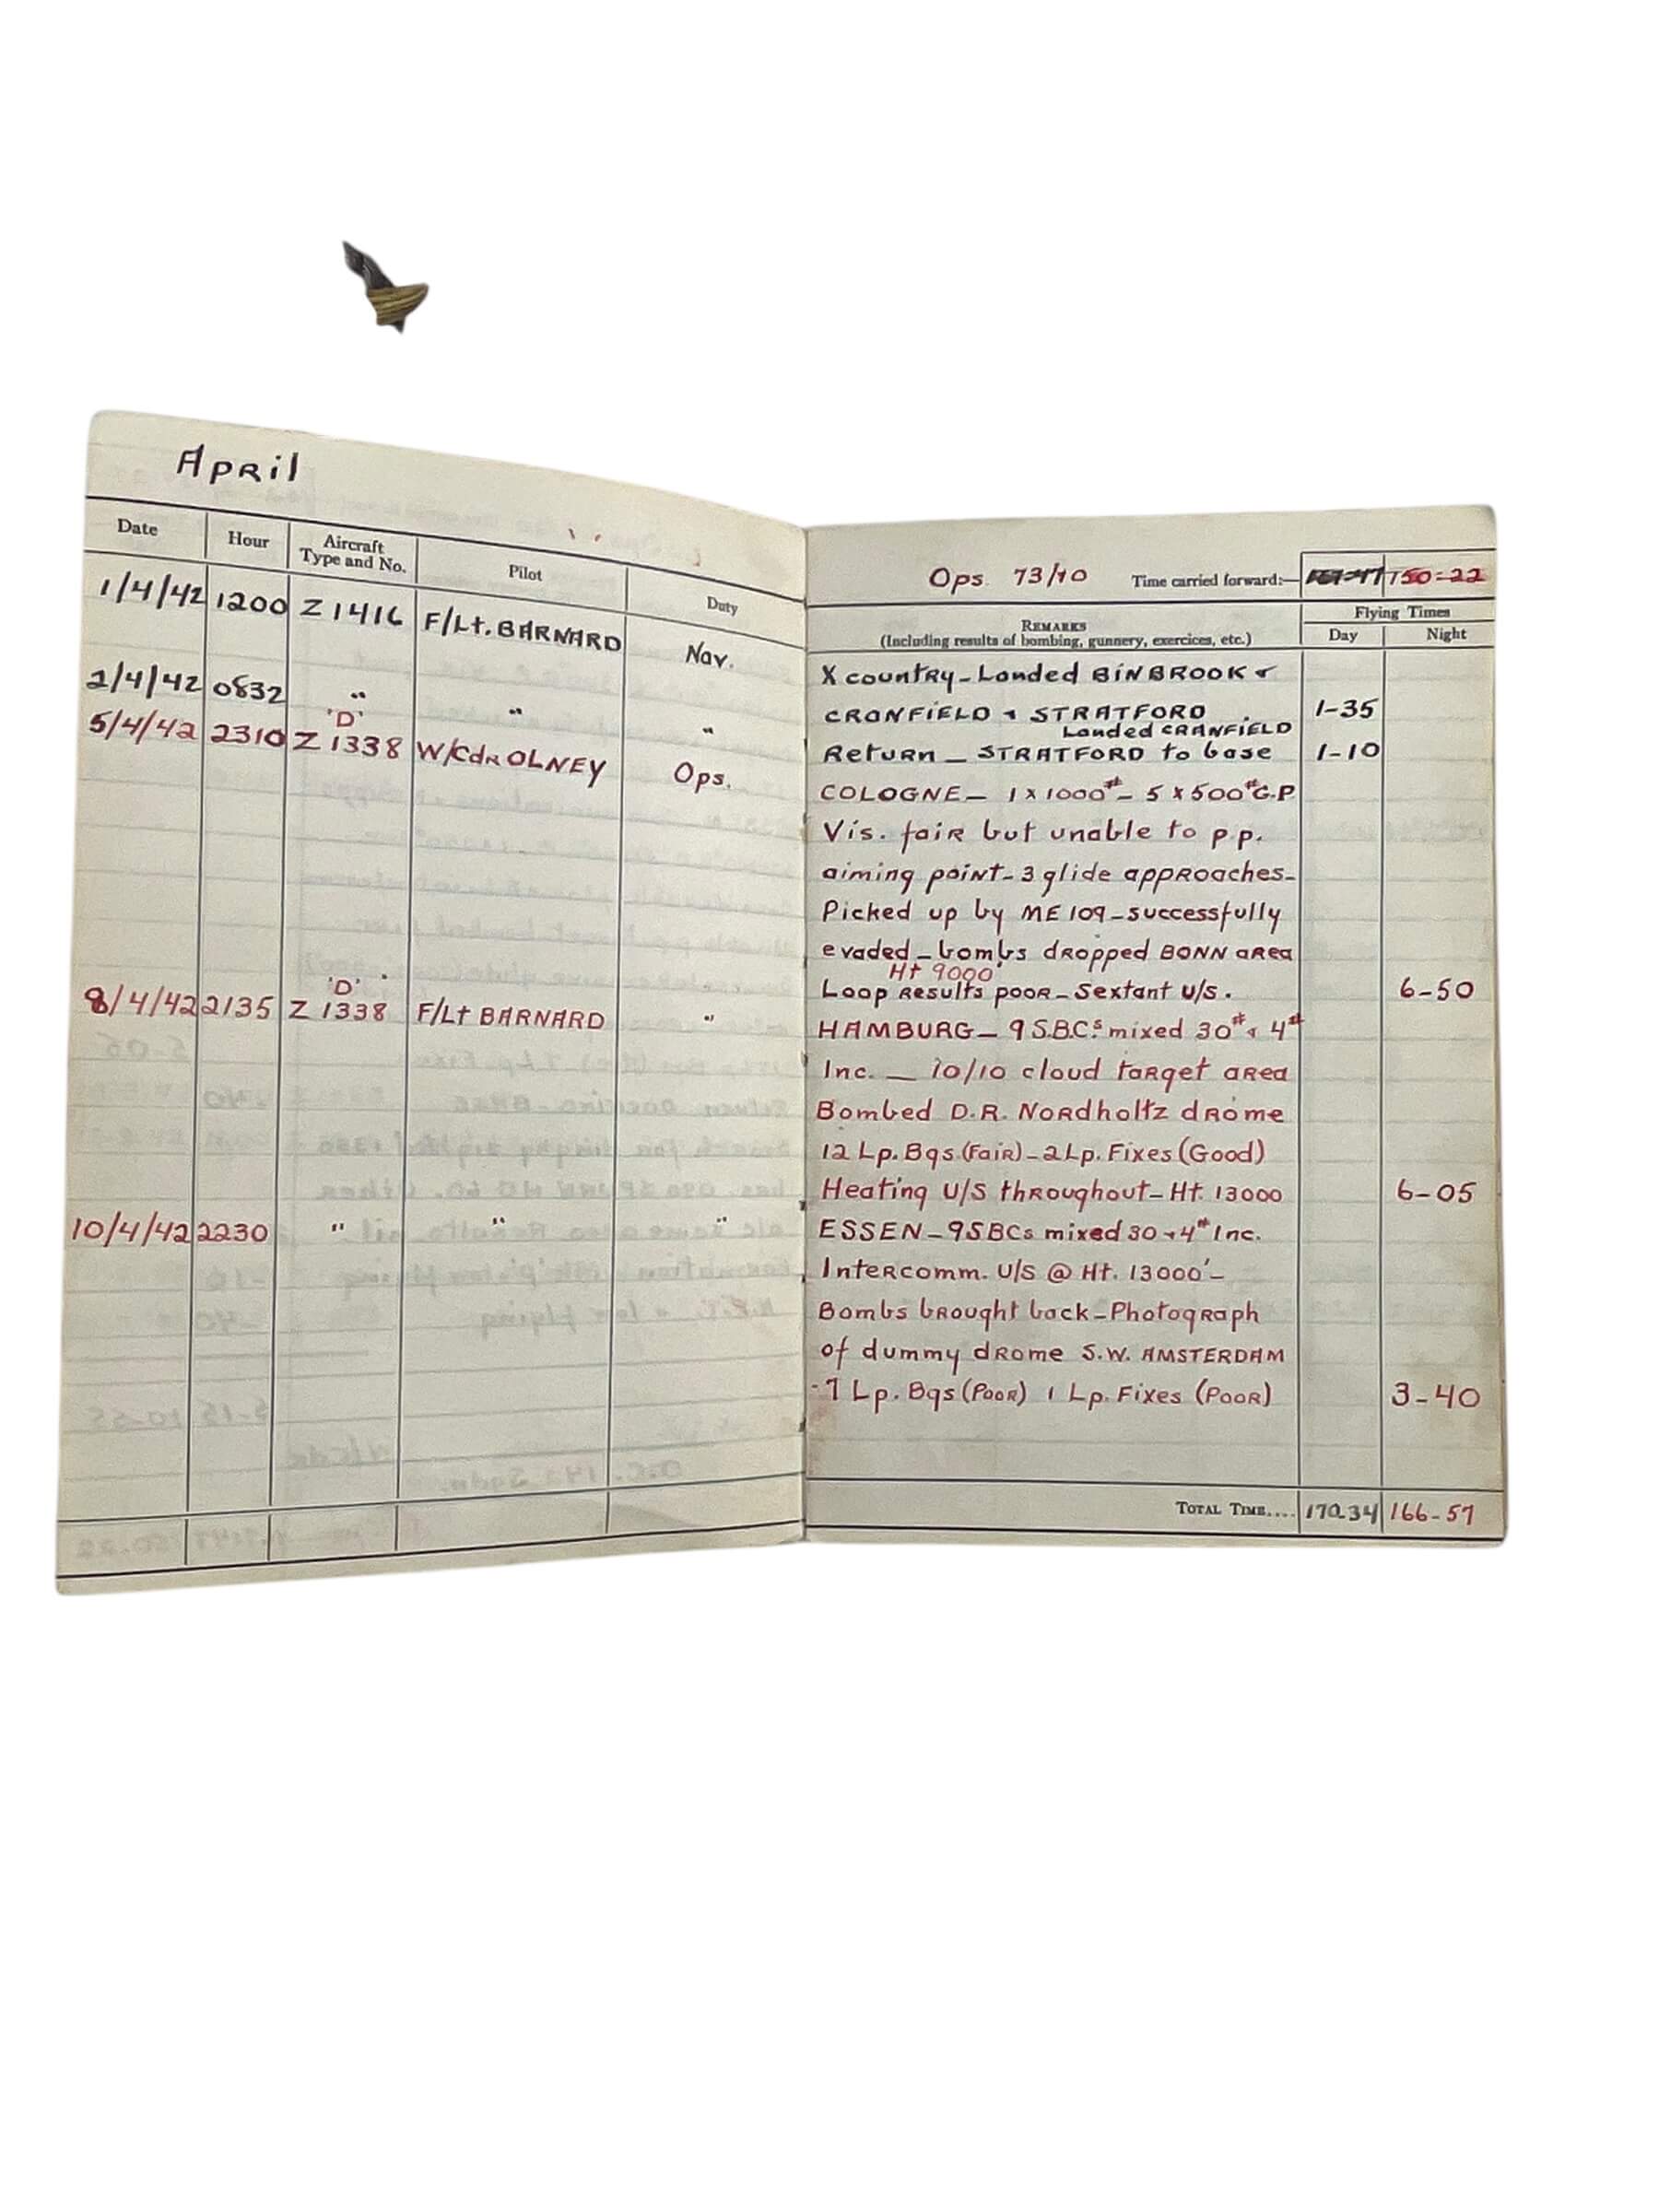 April
Date Hour Aircraft Type and No. Pilot Duty
1/4/42 1200 Z1416 F/Lt. BARNARD Nav.
2/4/42 0832 " " "
5/4/42 2310 'D' Z1338 W/Cdr OLNEY Ops.
8/4/42 2135 'D' Z1338 F/Lt BARNARD "
10/4/42 2230 " " "
Ops 73/10 Time carried forward:— 150=22
REMARKS
(Including results of bombing, gunnery, exercises, etc.)
Flying Times
Day Night
X country - Landed BINBROOK &
CRANFIELD & STRATFORD 1-35
Landed CRANFIELD
Return - STRATFORD to base 1-10
COLOGNE - 1 x 1000# - 5 x 500# G.P
Vis. fair but unable to p.p.
aiming point - 3 glide approaches -
Picked up by ME 109 - successfully
evaded - bombs dropped BONN area
Ht 9000'
Loop results poor - Sextant U/S. 6-50
HAMBURG - 9 S.B.C.s mixed 30# & 4#
Inc. - 10/10 cloud target area
Bombed D.R. Nordholtz drome
12 Lp. Bqs (Fair) - 2 Lp. Fixes (Good)
Heating U/S throughout - Ht. 13000 6-05
ESSEN - 9 SBCs mixed 30 & 4# Inc.
Intercomm. U/S @ Ht. 13000' -
Bombs brought back - Photograph
of dummy drome S.W. AMSTERDAM
- 7 Lp. Bqs (Poor) 1 Lp. Fixes (Poor) 3-40
TOTAL TIME.... 170.34 166-57